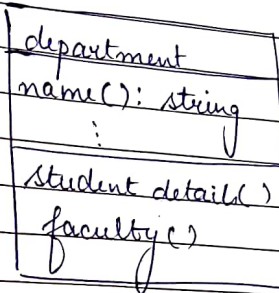 department
name(): string
:
student details()
faculty()